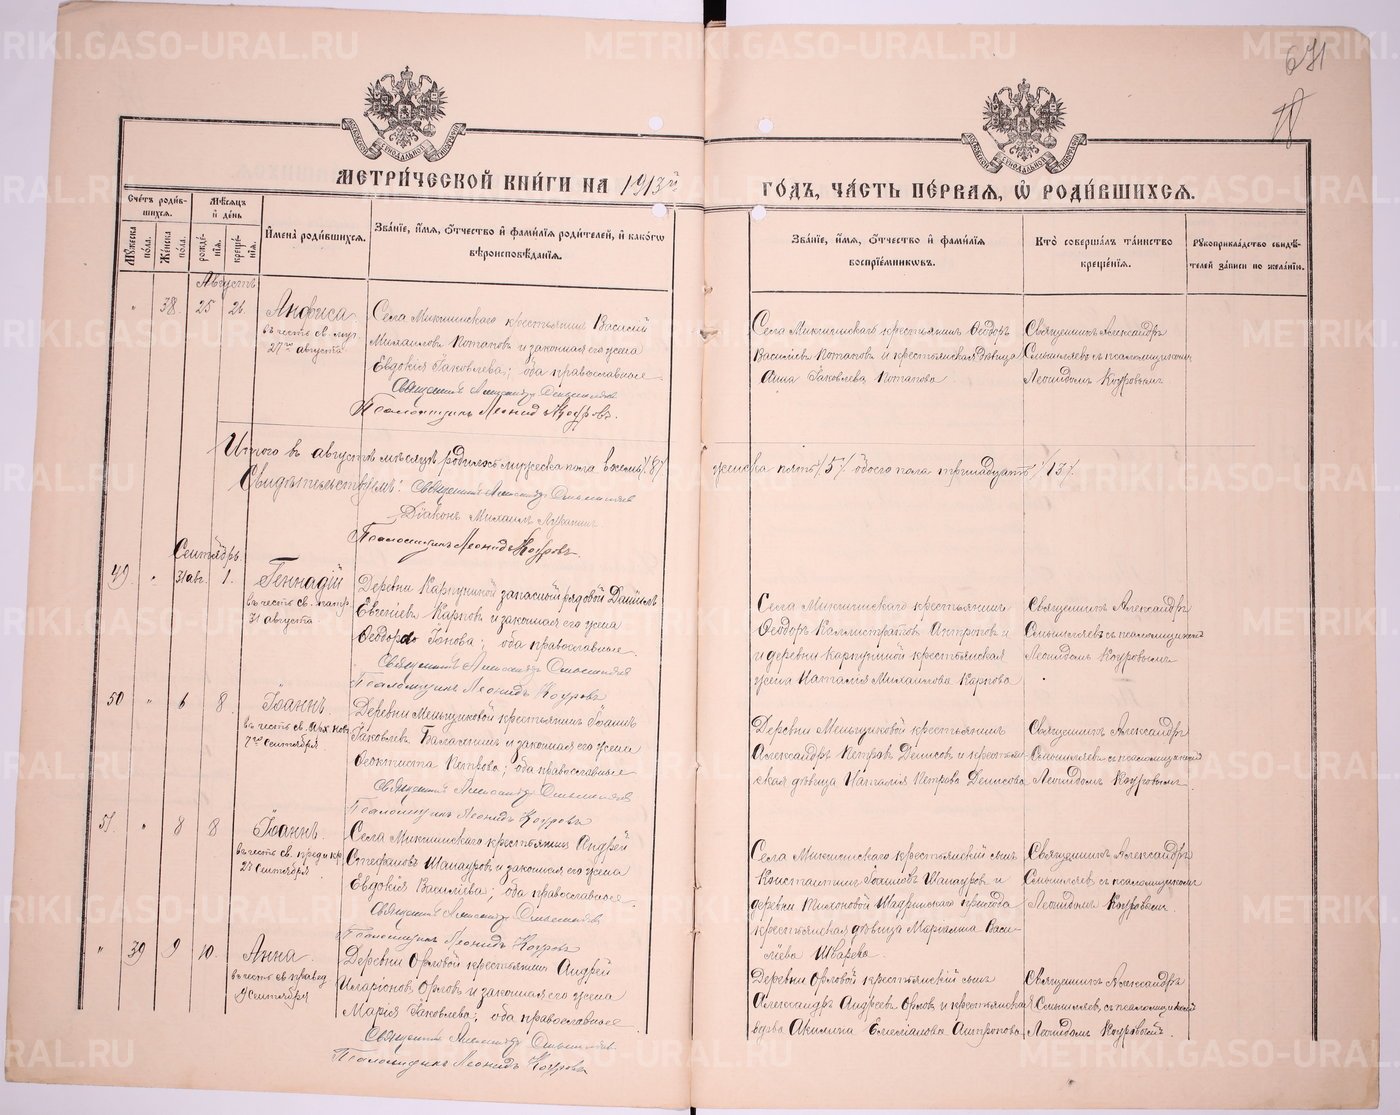 METRIKI.GASO-URAL.RU
671
78
МЕТРИ́ЧЕСКОЙ КНИ́ГИ НА 1913й
ГО́ДЪ, ЧА́СТЬ ПЕ́РВАЯ, Ѽ РОДИ́ВШИХСЯ.
Сче́тъ роди́в-
шихся.
Мѣ́сяцъ
и҆ де́нь
Му́жеска по́ла.
Же́нска по́ла.
рожде́-
нїя.
креще́-
нїя.
И҆мена̀ роди́вшихся.
Зва́нїе, и҆́мя, ѻ҆́тчество и҆ фами́лїя роди́телей, и҆ како́гѡ
вѣроисповѣ́данїя.
Зва́нїе, и҆́мя, ѻ҆́тчество и҆ фами́лїя
воспрїе́мниковъ.
Кто̀ соверша́лъ та́инство
креще́нїя.
Рукоприкла́дство свидѣ́-
телей за́писи по жела́нїю.
Августъ
" 38. 25 26.
Анфиса
въ честь св. муч.
27го августа
Села Микшинскаго крестьянинъ Василій
Михаиловъ Потаповъ и законная его жена
Евдокія Іаковлева; оба православные
Священникъ Александръ Смышляевъ
Псаломщикъ Леонидъ Коуровъ.
Села Микшинскаго крестьянинъ Ѳеодоръ
Василіевъ Потаповъ и крестьянская дѣвица
Анна Іаковлева Потапова
Священникъ Александръ
Смышляевъ съ псаломщикомъ
Леонидомъ Коуровымъ
Итого въ августѣ мѣсяцѣ родилось мужеска пола восемь /8/
женска пять /5/ обоего пола тринадцать /13/
Свидѣтельствуемъ: Священникъ Александръ Смышляевъ
Діаконъ Михаилъ
Псаломщикъ Леонидъ Коуровъ.
Сентябрь
49. " 31 авг. 1.
Геннадій
въ честь св. патр.
31 августа
Деревни Карпуниной запасный рядовой Даніилъ
Евгеніевъ Карповъ и законная его жена
Ѳеодора Іонова; оба православные
Священникъ Александръ Смышляевъ
Псаломщикъ Леонидъ Коуровъ
Села Микшинскаго крестьянинъ
Ѳеодоръ Каллистратовъ Антроповъ и
и деревни Карпуниной крестьянская
жена Наталія Михаилова Карпова
Священникъ Александръ
Смышляевъ съ псаломщикомъ
Леонидомъ Коуровымъ
50 " 6 8.
Іоаннъ
въ честь св. Нов.
7го Сентября
Деревни Меньщиковой крестьянинъ Іоаннъ
Іаковлевъ и законная его жена
Ѳеоктиста Петрова; оба православные
Священникъ Александръ Смышляевъ
Псаломщикъ Леонидъ Коуровъ
Деревни Меньщиковой крестьянинъ
Александръ Петровъ Денисовъ и крестьян-
ская дѣвица Наталія Петрова Денисова
Священникъ Александръ
Смышляевъ съ псаломщикомъ
Леонидомъ Коуровымъ
51. " 8 8
Іоаннъ.
въ честь св. пред. и кр.
Сентября
Села Микшинскаго крестьянинъ Андрей
Стефановъ Шанауровъ и законная его жена
Евдокія Василіева; оба православные
Священникъ Александръ Смышляевъ
Псаломщикъ Леонидъ Коуровъ
Села Микшинскаго крестьянскій сынъ
Константинъ Іоанновъ Шанауровъ и
деревни Тихоновой Шадринскаго прихода
крестьянская дѣвица Маріамна Васи-
ліева Шварева.
Священникъ Александръ
Смышляевъ съ псаломщикомъ
Леонидомъ Коуровымъ.
" 39 9 10.
Анна.
въ честь св. правед.
9 Сентября
Деревни Орловой крестьянинъ Андрей
Иларіоновъ Орловъ и законная его жена
Марія Іаковлева; оба православные
Священникъ Александръ Смышляевъ
Псаломщикъ Леонидъ Коуровъ
Деревни Орловой крестьянскій сынъ
Александръ Андреевъ Орловъ и крестьянская
вдова Акилина Емеліанова Антропова
Священникъ Александръ
Смышляевъ съ псаломщикомъ
Леонидомъ Коуровымъ